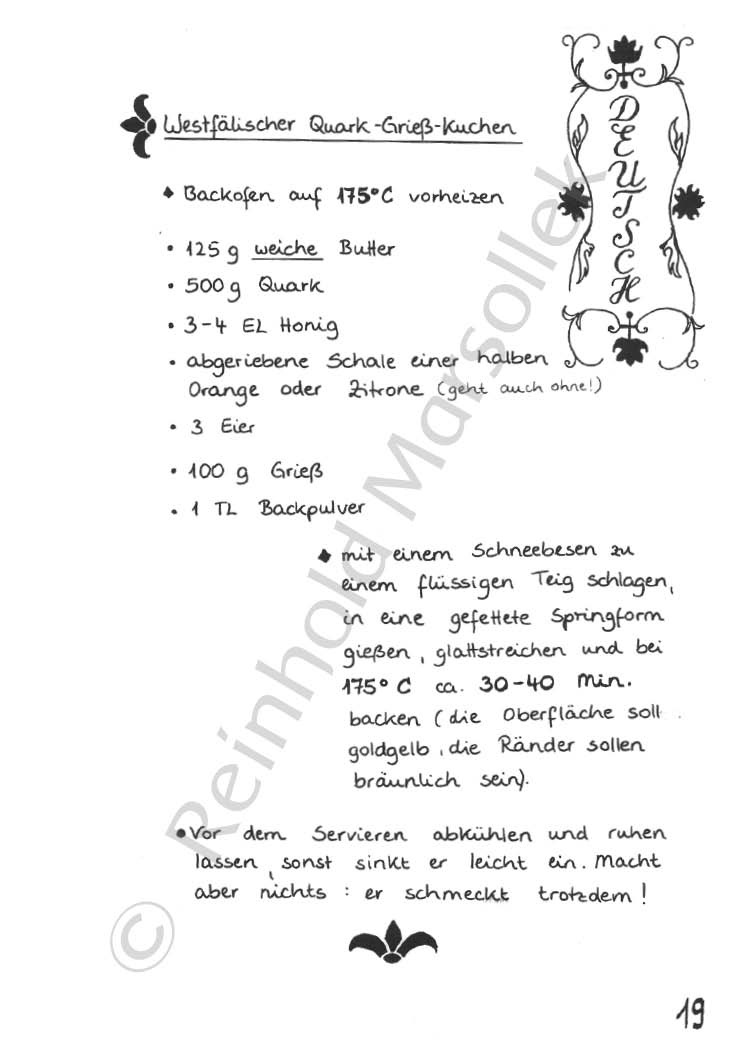 Westfälischer Quark-Grieß-Kuchen
DEUTSCH
◆ Backofen auf 175°C vorheizen
• 125 g weiche Butter
• 500 g Quark
• 3-4 EL Honig
• abgeriebene Schale einer halben
Orange oder Zitrone (geht auch ohne!)
• 3 Eier
• 100 g Grieß
• 1 TL Backpulver
◆ mit einem Schneebesen zu
einem flüssigen Teig schlagen,
in eine gefettete Springform
gießen, glattstreichen und bei
175° C ca. 30-40 Min.
backen (die Oberfläche soll
goldgelb, die Ränder sollen
bräunlich sein).
• Vor dem Servieren abkühlen und ruhen
lassen, sonst sinkt er leicht ein. Macht
aber nichts: er schmeckt trotzdem!
© Reinhold Marsollek
19